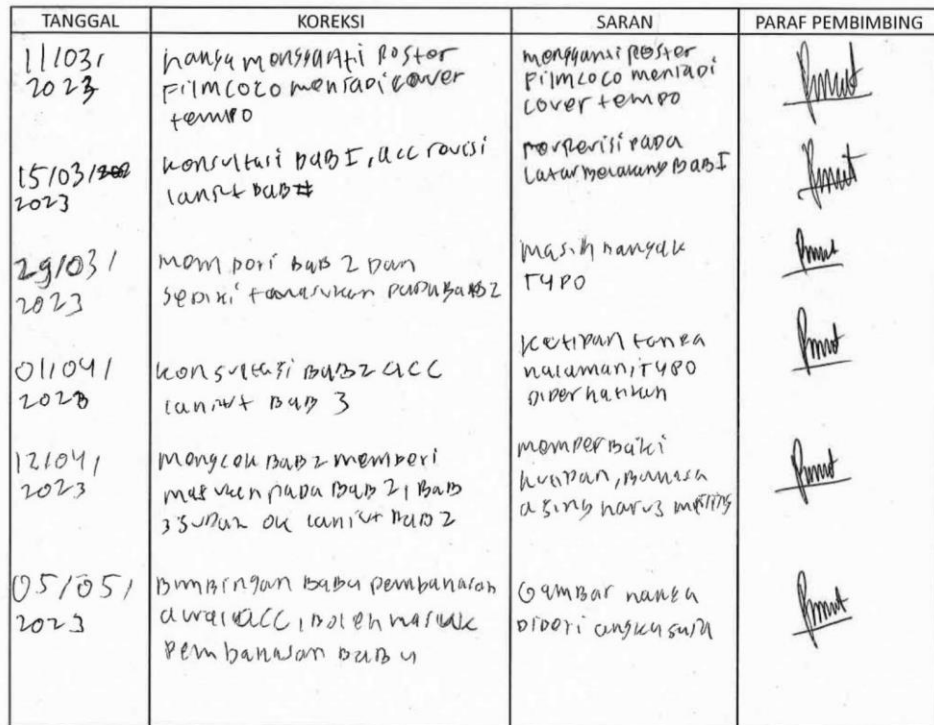 TANGGAL KOREKSI SARAN PARAF PEMBIMBING
11/03/
2023
hanya mengganti Poster
Film coco menjadi cover
tempo
mengganti Poster
Film coco menjadi
cover tempo
15/03/
2023
konsultasi BAB I, acc revisi
lanjut BAB
pada
Latar Belakang BAB I
29/03/
2023
memberi BAB 2 Dan
masukan pada BAB 2
masih banyak
TYPO
01/04/
2023
konsultasi BAB 2 acc
lanjut BAB 3
kutipan tanpa
halaman, TYPO
Diperhatikan
12/04/
2023
mengcek BAB 2 memberi
masukan pada BAB 2, BAB
3 sudah ok lanjut BAB 2
memperbaiki
kutipan, Bahasa
asing harus miring
05/05/
2023
Bimbingan BAB 4 pembahasan
awal acc, Boleh masuk
Pembahasan BAB 4
Gambar hanya
Diberi angka saja